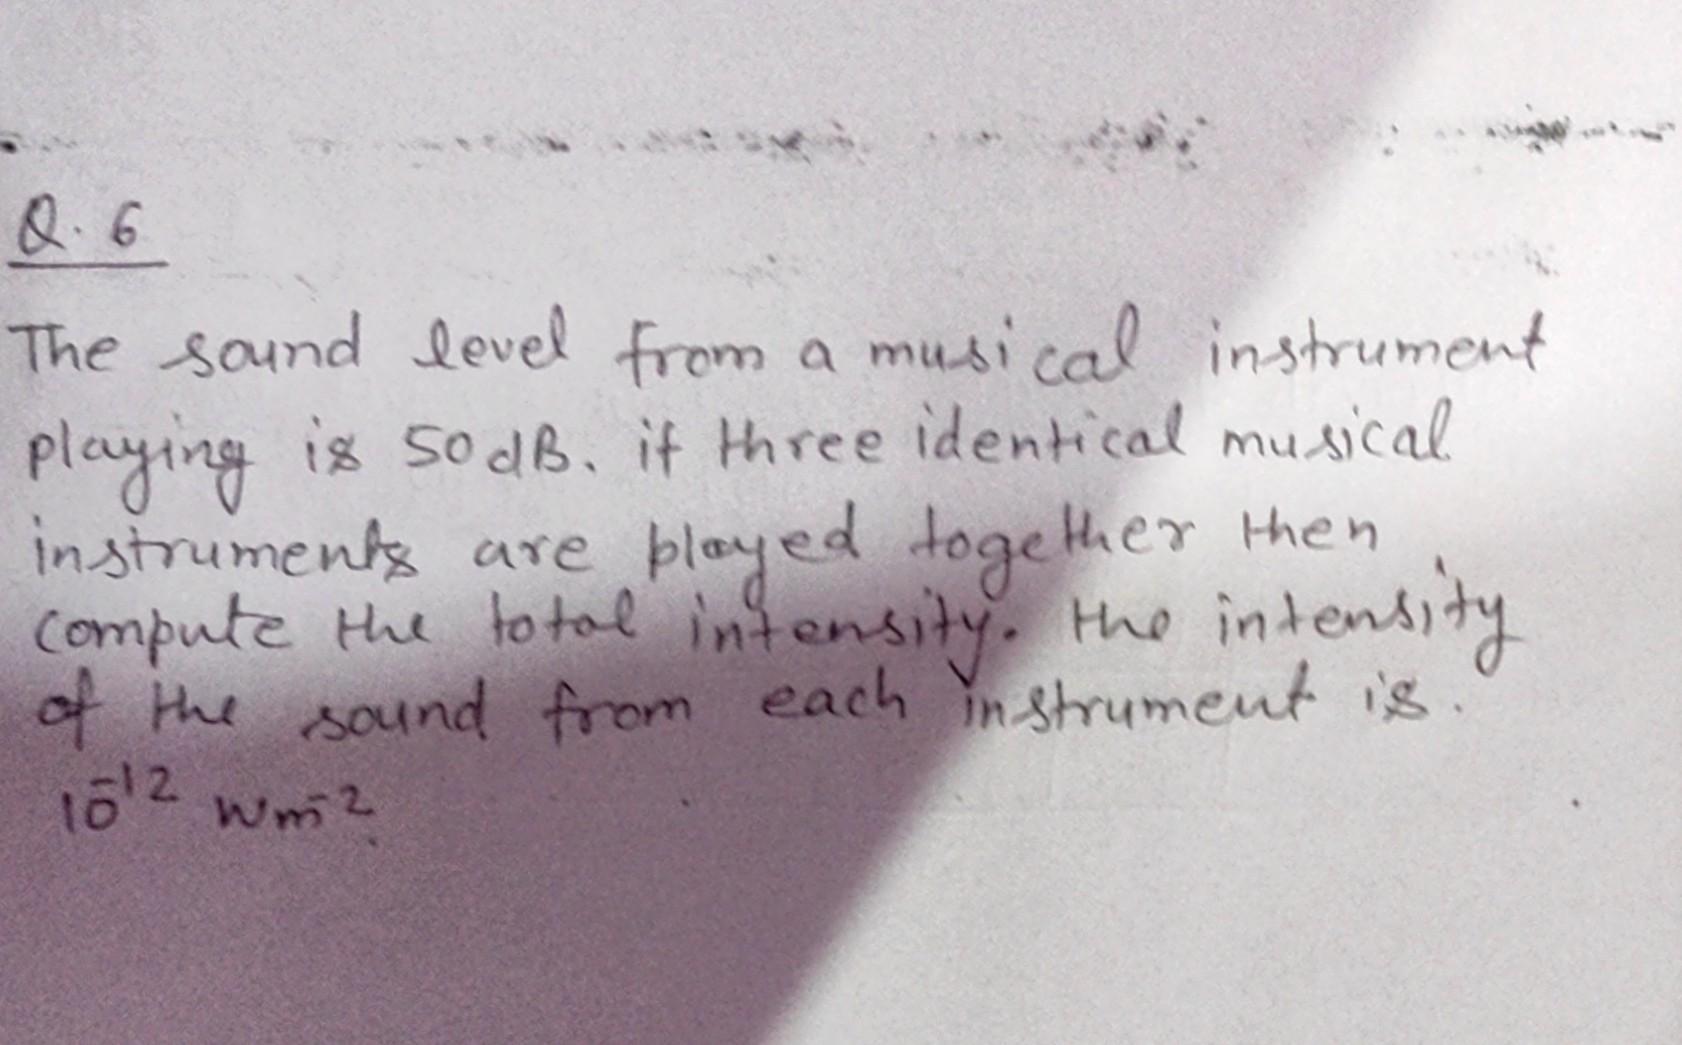 Q. 6
The sound level from a musical instrument
playing is 50 dB. if three identical musical
instruments are played together then
compute the total intensity. the intensity
of the sound from each instrument is.
10⁻¹² Wm⁻²